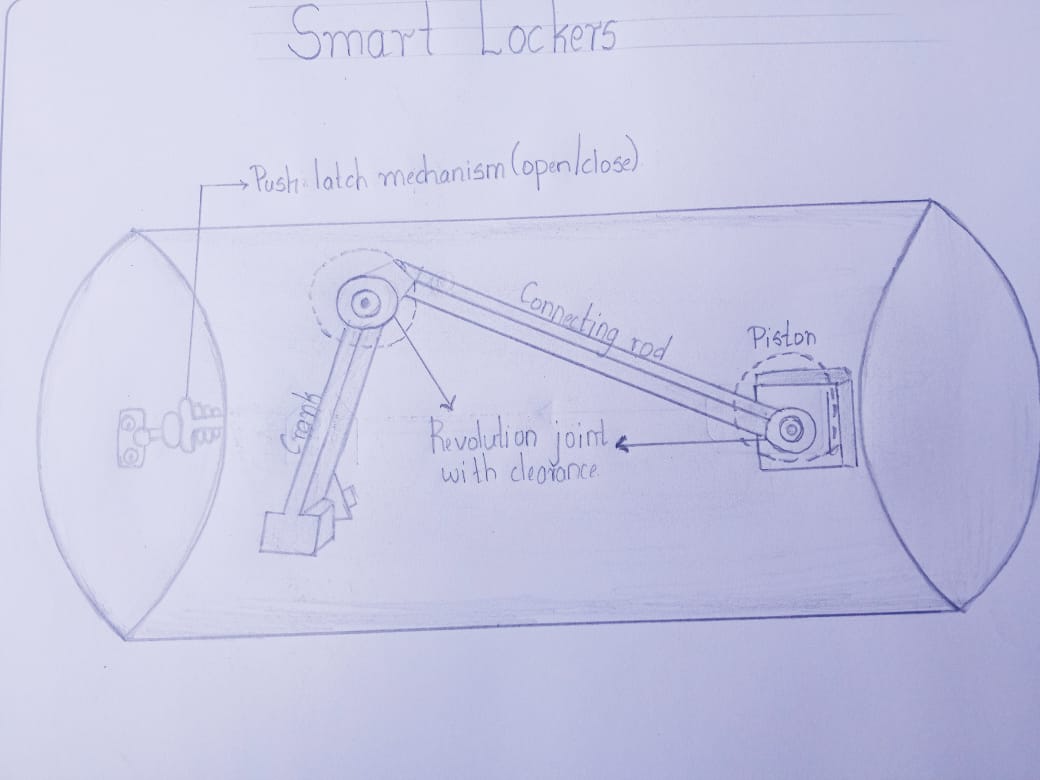 Smart Lockers
Push latch mechanism (open/close)
Connecting rod
Piston
Crank
Revolution joint
with clearance